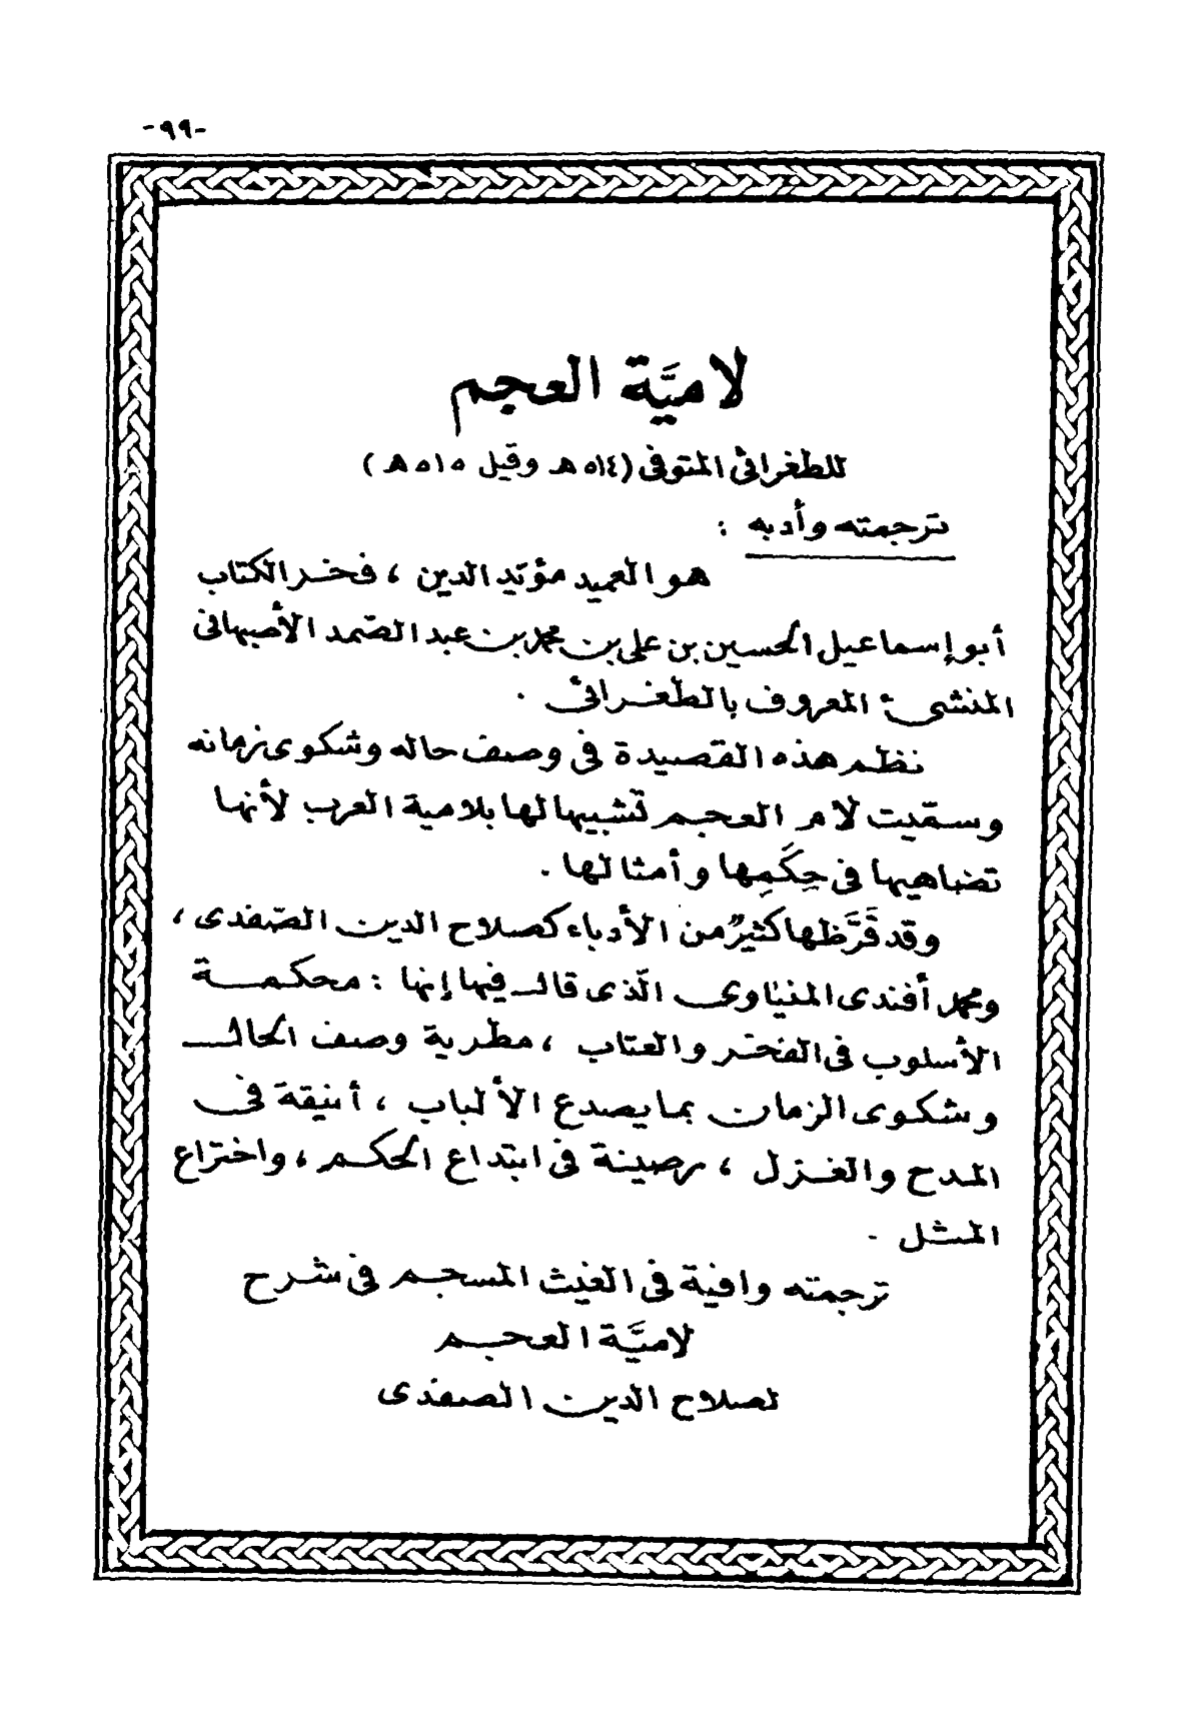 -٩٩-
لاميَّة العجم
للطغرائى المتوفى (٥١٤ هـ وقيل ٥١٥ هـ)
ترجمته وأدبه :
هو العميد مؤيّد الدين ، فخر الكتاب
أبو إسماعيل الحسين بن على بن محمد بن عبد الصّمد الأصبهانى
المنشىء المعروف بالطغرائى .
نظم هذه القصيدة فى وصف حاله وشكوى زمانه
وسمّيت لام العجم تشبيها لها بلامية العرب لأنها
تضاهيها فى حِكَمِها وأمثالها .
وقد قَرَّظها كثيرٌ من الأدباء كصلاح الدين الصّفدى ،
ومحمد أفندى المنياوى الّذى قال فيها إنها : محكمة
الأسلوب فى الفخر والعتاب ، مطرية وصف الحال
وشكوى الزمان بما يصدع الألباب ، أنيقة فى
المدح والغزل ، رصينة فى ابتداع الحكم ، واختراع
المثل .
ترجمته وافية فى الغيث المسجم فى شرح
لاميَّة العجم
لصلاح الدين الصفدى